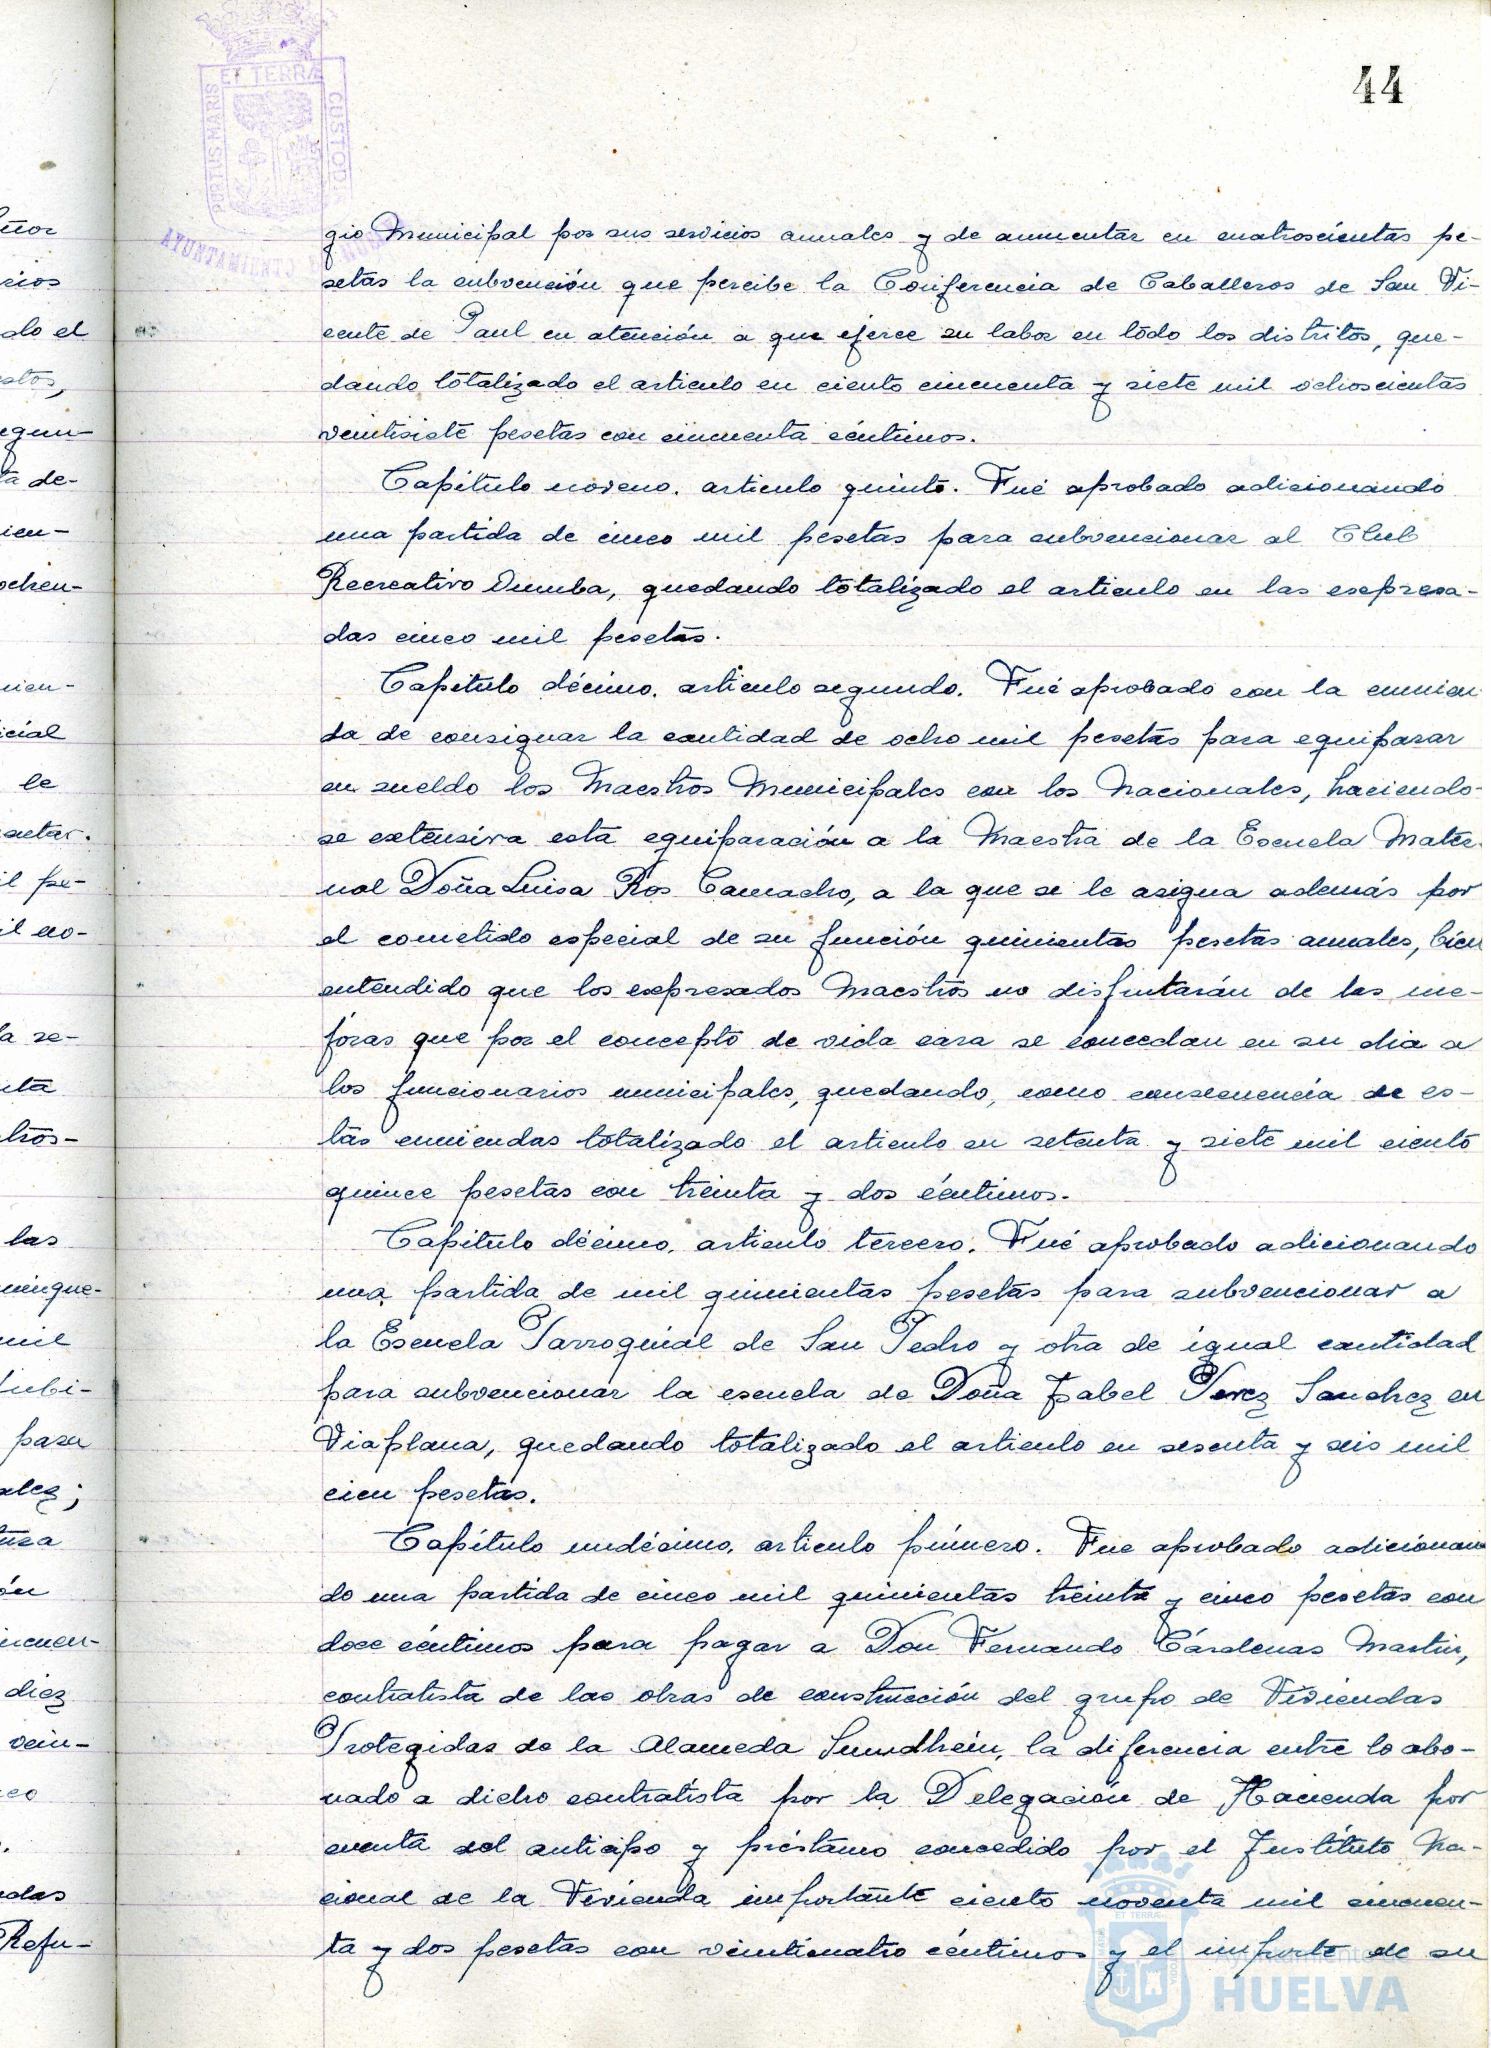 44
PORTUS MARIS ET TERRÆ CUSTOD
AYUNTAMIENTO
gio Municipal por sus servicios anuales y de aumentar en cuatroscientas pe-
setas la subvención que percibe la Conferencia de Caballeros de San Vi-
cente de Paul en atención a que ejerce su labor en todo los distritos, que-
dando totalizado el articulo en ciento cincuenta y siete mil ochoscientas
veintisiete pesetas con cincuenta céntimos.
Capítulo noveno. articulo quinto. Fué aprobado adicionando
una partida de cinco mil pesetas para subvencionar al Club
Recreativo Onuba, quedando totalizado el articulo en las expresa-
das cinco mil pesetas.
Capítulo décimo. articulo segundo. Fué aprobado con la enmien
da de consignar la cantidad de ocho mil pesetas para equiparar
en sueldo los Maestros Municipales con los Nacionales, haciendo-
se extensiva esta equiparación a la Maestra de la Escuela Mater-
nal Doña Luisa Ros Camacho, a la que se le asigna además por
el cometido especial de su función quinientas pesetas anuales, bien
entendido que los expresados Maestros no disfrutarán de las me-
joras que por el concepto de vida cara se concedan en su dia a
los funcionarios municipales, quedando, como consecuencia de es-
tas enmiendas totalizado el articulo en setenta y siete mil ciento
quince pesetas con treinta y dos céntimos.
Capítulo décimo. articulo tercero. Fué aprobado adicionando
una partida de mil quinientas pesetas para subvencionar a
la Escuela Parroquial de San Pedro y otra de igual cantidad
para subvencionar la escuela de Doña Isabel Perez Sanchez en
Viaplana, quedando totalizado el articulo en sesenta y seis mil
cien pesetas.
Capítulo undécimo. articulo primero. Fue aprobado adicionan
do una partida de cinco mil quinientas treinta y cinco pesetas con
doce céntimos para pagar a Don Fernando Cárdenas Martin,
contratista de las obras de construcción del grupo de Viviendas
Protegidas de la Alameda Sundhein, la diferencia entre lo abo-
nado a dicho contratista por la Delegación de Hacienda por
cuenta del anticipo y préstamo concedido por el Instituto Na-
cional de la Vivienda importante ciento noventa mil cincuen-
ta y dos pesetas con veinticuatro céntimos y el importe de su
Ayuntamiento de
HUELVA